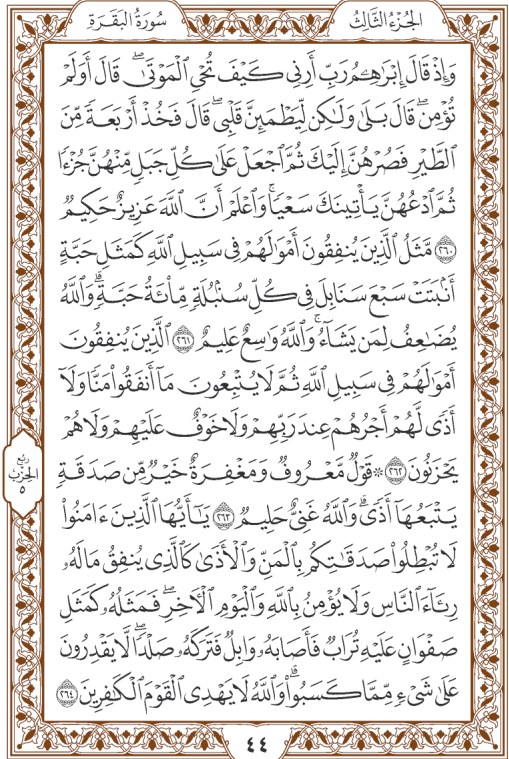 الجزء الثالث
سورة البقرة
وَإِذْ قَالَ إِبْرَٰهِـۧمُ رَبِّ أَرِنِى كَيْفَ تُحْىِ ٱلْمَوْتَىٰ ۖ قَالَ أَوَلَمْ
تُؤْمِن ۖ قَالَ بَلَىٰ وَلَـٰكِن لِّيَطْمَئِنَّ قَلْبِى ۖ قَالَ فَخُذْ أَرْبَعَةً مِّنَ
ٱلطَّيْرِ فَصُرْهُنَّ إِلَيْكَ ثُمَّ ٱجْعَلْ عَلَىٰ كُلِّ جَبَلٍ مِّنْهُنَّ جُزْءًا
ثُمَّ ٱدْعُهُنَّ يَأْتِينَكَ سَعْيًا ۚ وَٱعْلَمْ أَنَّ ٱللَّهَ عَزِيزٌ حَكِيمٌ
٢٦٠ مَّثَلُ ٱلَّذِينَ يُنفِقُونَ أَمْوَٰلَهُمْ فِى سَبِيلِ ٱللَّهِ كَمَثَلِ حَبَّةٍ
أَنۢبَتَتْ سَبْعَ سَنَابِلَ فِى كُلِّ سُنۢبُلَةٍ مِّا۟ئَةُ حَبَّةٍ ۗ وَٱللَّهُ
يُضَـٰعِفُ لِمَن يَشَآءُ ۗ وَٱللَّهُ وَٰسِعٌ عَلِيمٌ ٢٦١ ٱلَّذِينَ يُنفِقُونَ
أَمْوَٰلَهُمْ فِى سَبِيلِ ٱللَّهِ ثُمَّ لَا يُتْبِعُونَ مَآ أَنفَقُوا۟ مَنًّا وَلَآ
أَذًى لَّهُمْ أَجْرُهُمْ عِندَ رَبِّهِمْ وَلَا خَوْفٌ عَلَيْهِمْ وَلَا هُمْ
يَحْزَنُونَ ٢٦٢ ۞ قَوْلٌ مَّعْرُوفٌ وَمَغْفِرَةٌ خَيْرٌ مِّن صَدَقَةٍ
يَتْبَعُهَآ أَذًى ۗ وَٱللَّهُ غَنِىٌّ حَلِيمٌ ٢٦٣ يَـٰٓأَيُّهَا ٱلَّذِينَ ءَامَنُوا۟
لَا تُبْطِلُوا۟ صَدَقَـٰتِكُم بِٱلْمَنِّ وَٱلْأَذَىٰ كَٱلَّذِى يُنفِقُ مَالَهُۥ
رِئَآءَ ٱلنَّاسِ وَلَا يُؤْمِنُ بِٱللَّهِ وَٱلْيَوْمِ ٱلْـَٔاخِرِ ۖ فَمَثَلُهُۥ كَمَثَلِ
صَفْوَانٍ عَلَيْهِ تُرَابٌ فَأَصَابَهُۥ وَابِلٌ فَتَرَكَهُۥ صَلْدًا ۖ لَّا يَقْدِرُونَ
عَلَىٰ شَىْءٍ مِّمَّا كَسَبُوا۟ ۗ وَٱللَّهُ لَا يَهْدِى ٱلْقَوْمَ ٱلْكَـٰفِرِينَ ٢٦٤
ربع
الحزب
٥
٤٤